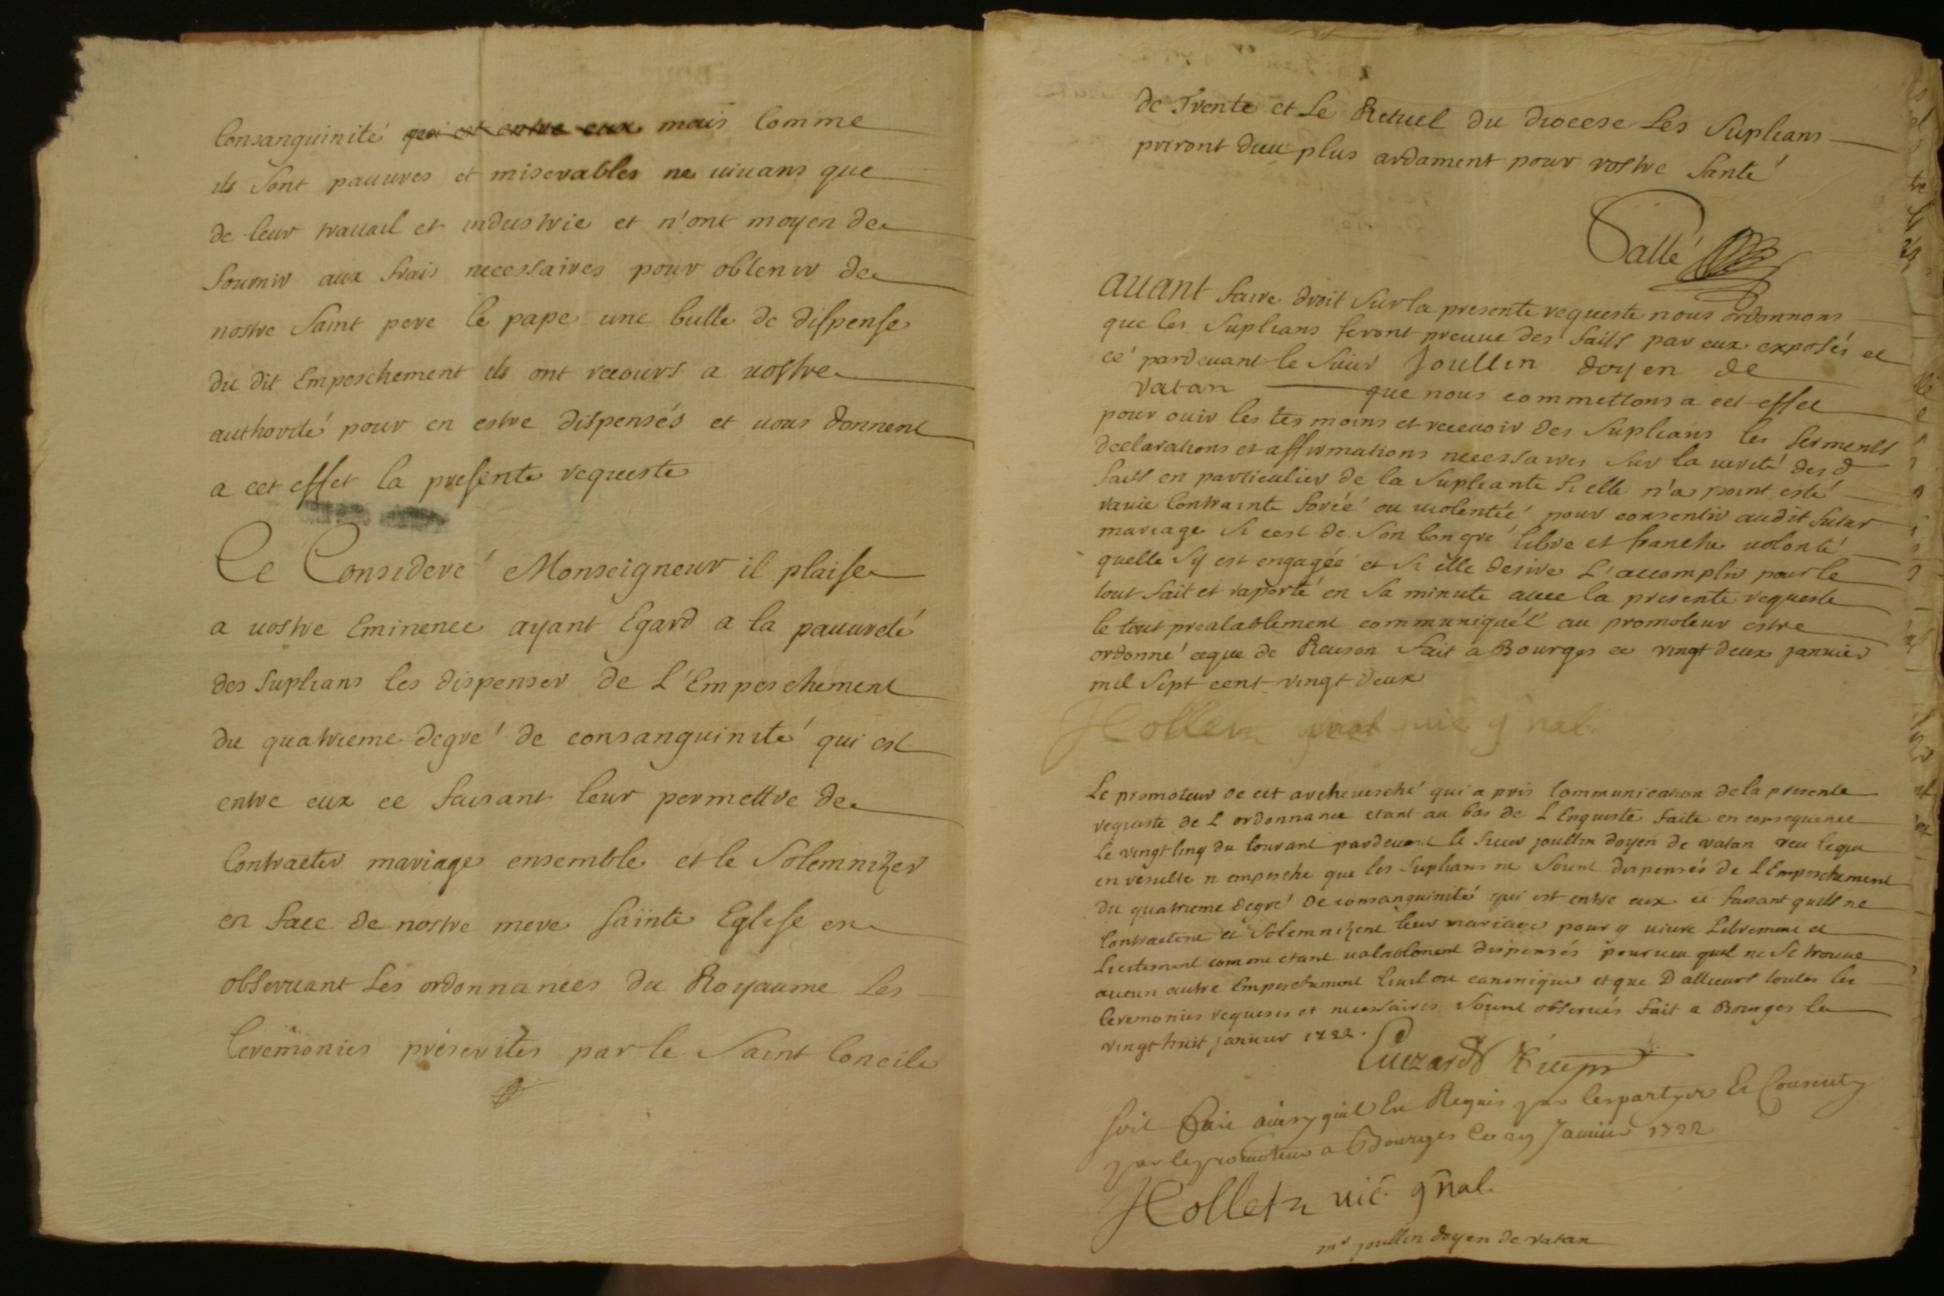 Consanguinité qui est entre eux mais Comme
ils sont pauures et miserables ne uiuans que
de leur trauail et industrie et n'ont moyen de
fournir aux frais necessaires pour obtenir de
nostre saint pere le pape une bulle de dispense
du dit Empeschement ils ont recours a uostre
authorité pour en estre dispensés et uous donnent
a cet effet la presente requeste
Ce Consideré Monseigneur il plaise
a uostre Eminence ayant Egard a la pauureté
des supliants les dispenser de L'Empeschement
du quatrieme degré de consanguinité qui est
entre eux ce faisant leur permettre de
Contracter mariage ensemble et le solemnizer
en face de nostre mere sainte Eglise en
obseruant Les ordonnances du Royaume Les
Ceremonies prescrites par le Saint Concile
de Trente et Le Rituel du diocese Les Suplians
priront dieu plus ardament pour vostre Santé
Sallé
auant faire droit Sur la presente requeste nous ordonnons
que les Suplians feront preuue des faits par eux exposés et
ce pardeuant le Sieur Joullin doyen de
vatan que nous commettons a cet effet
pour ouir les tesmoins et receuoir des Suplians les serments
declarations et affirmations necessaires Sur la uerité desd
faits en particulier de la Supliante Si elle n'a point esté
rauie Contrainte forcée ou uiolentée pour consentir audit futur
mariage Si c'est de Son bon gré libre et franche uolonté
quelle S'y est engagée et Si elle desire L'accomplir pour le
tout fait et raporté en Sa minute auec la presente requeste
le tout prealablement communiqué au promoteur estre
ordonné ceque de Raison fait a Bourges ce vingt deux januier
mil Sept cent vingt deux
Hollen uic gñal.
Le promoteur de cet archeuesché qui a pris Communication de la presente
requeste de L'ordonnance etant au bas de L'Enqueste faite en consequence
le vingt cinq du Courant pardeuant le Sieur joullin doyen de vatan veu ceque
en resulte n'empesche que les Suplians ne Soient dispensés de L'Empeschement
du quatrieme degré de consanguinité qui est entre eux ce faisant quils ne
Contractent et Solemnizent leur mariage pour y uiure Librement et
Licitement comme etant ualablement dispensés pourueu quil ne Se trouue
aucun autre Empeschement Ciuil ou canonique et que D'allieurs toutes les
Ceremonies requises et necessaires Soient obserués fait a Bourges le
vingt huit januier 1722.
soit fait ainsy quil Est Requis par les partyes Et Consenty
par le promoteur a Bourges le 29 Januier 1722
Hollen uic. gñal.
mr joullin doyen de vatan